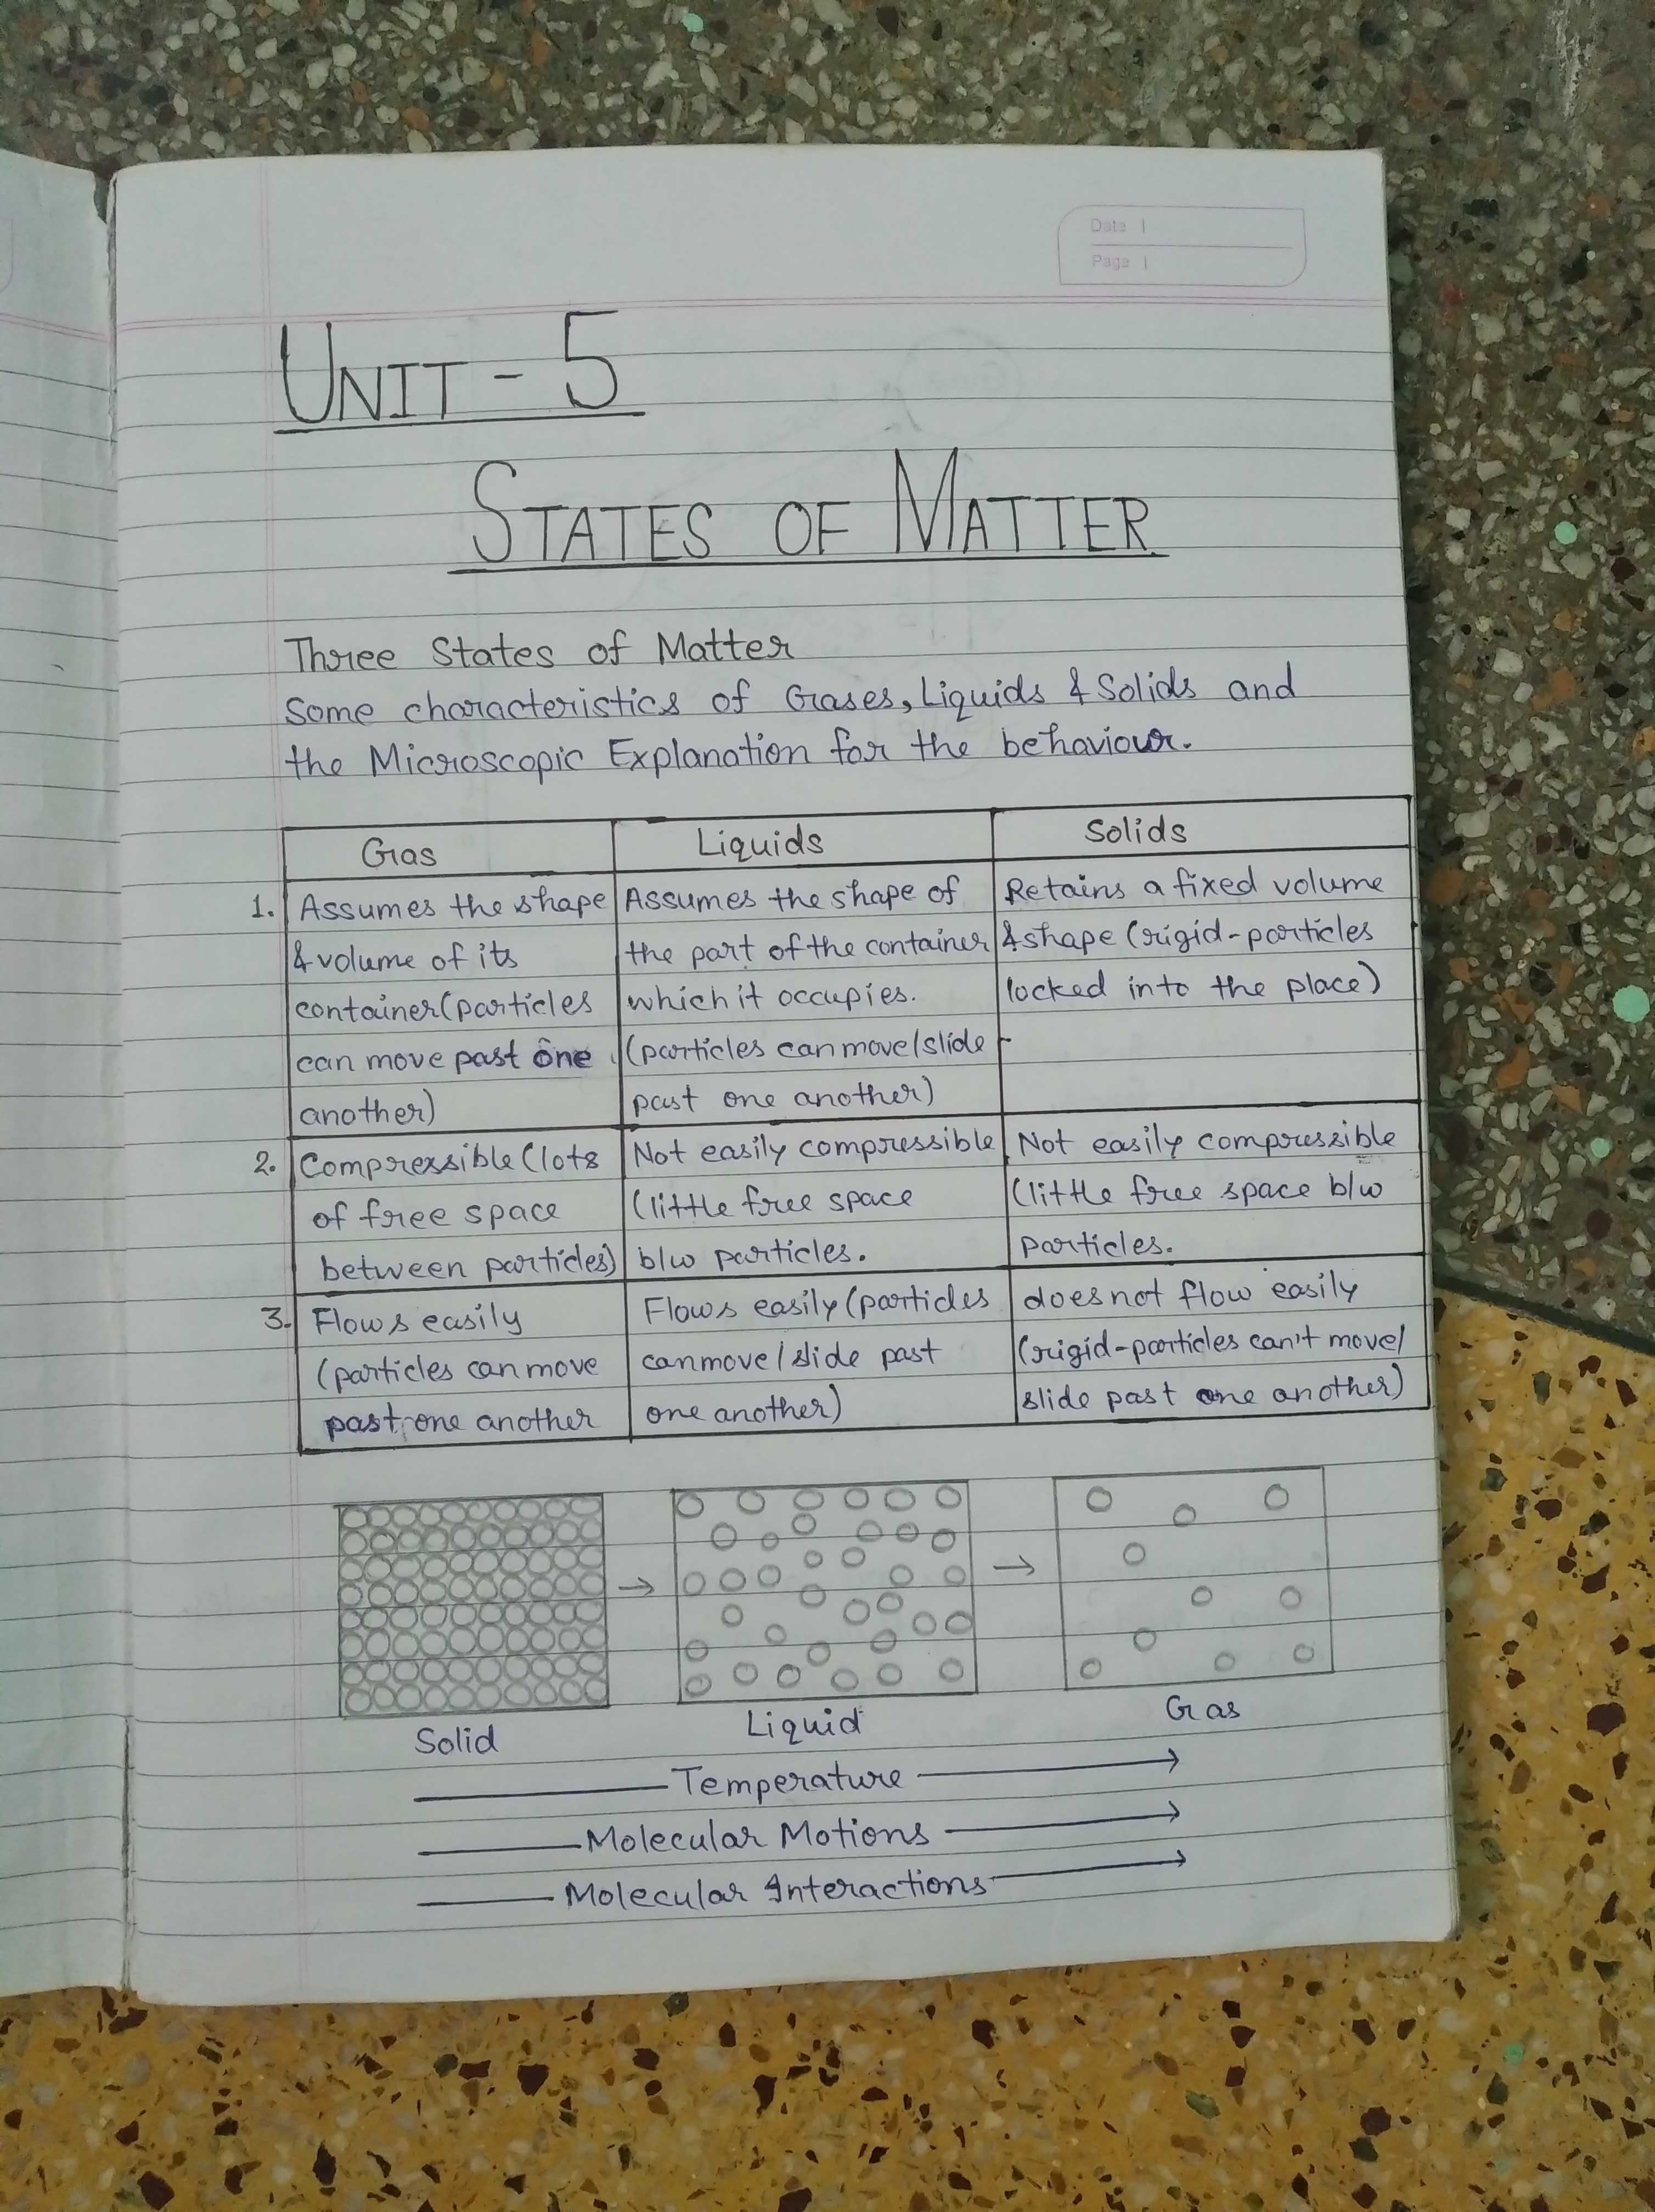 Date
Page
UNIT - 5
STATES OF MATTER
Three States of Matter
Some characteristics of Gases, Liquids & Solids and
the Microscopic Explanation for the behaviour.
Gas
Liquids
Solids
1. Assumes the shape
& volume of its
container (particles
can move past one
another)
Assumes the shape of
the part of the container
which it occupies.
(particles can move/slide
past one another)
Retains a fixed volume
& shape (rigid-particles
locked into the place)
2. Compressible (lots
of free space
between particles)
Not easily compressible
(little free space
b/w particles.
Not easily compressible
(little free space b/w
particles.
3. Flows easily
(particles can move
past one another
Flows easily (particles
can move / slide past
one another)
does not flow easily
(rigid-particles can't move/
slide past one another)
→ →
Solid
Liquid
Gas
Temperature →
Molecular Motions →
Molecular Interactions →